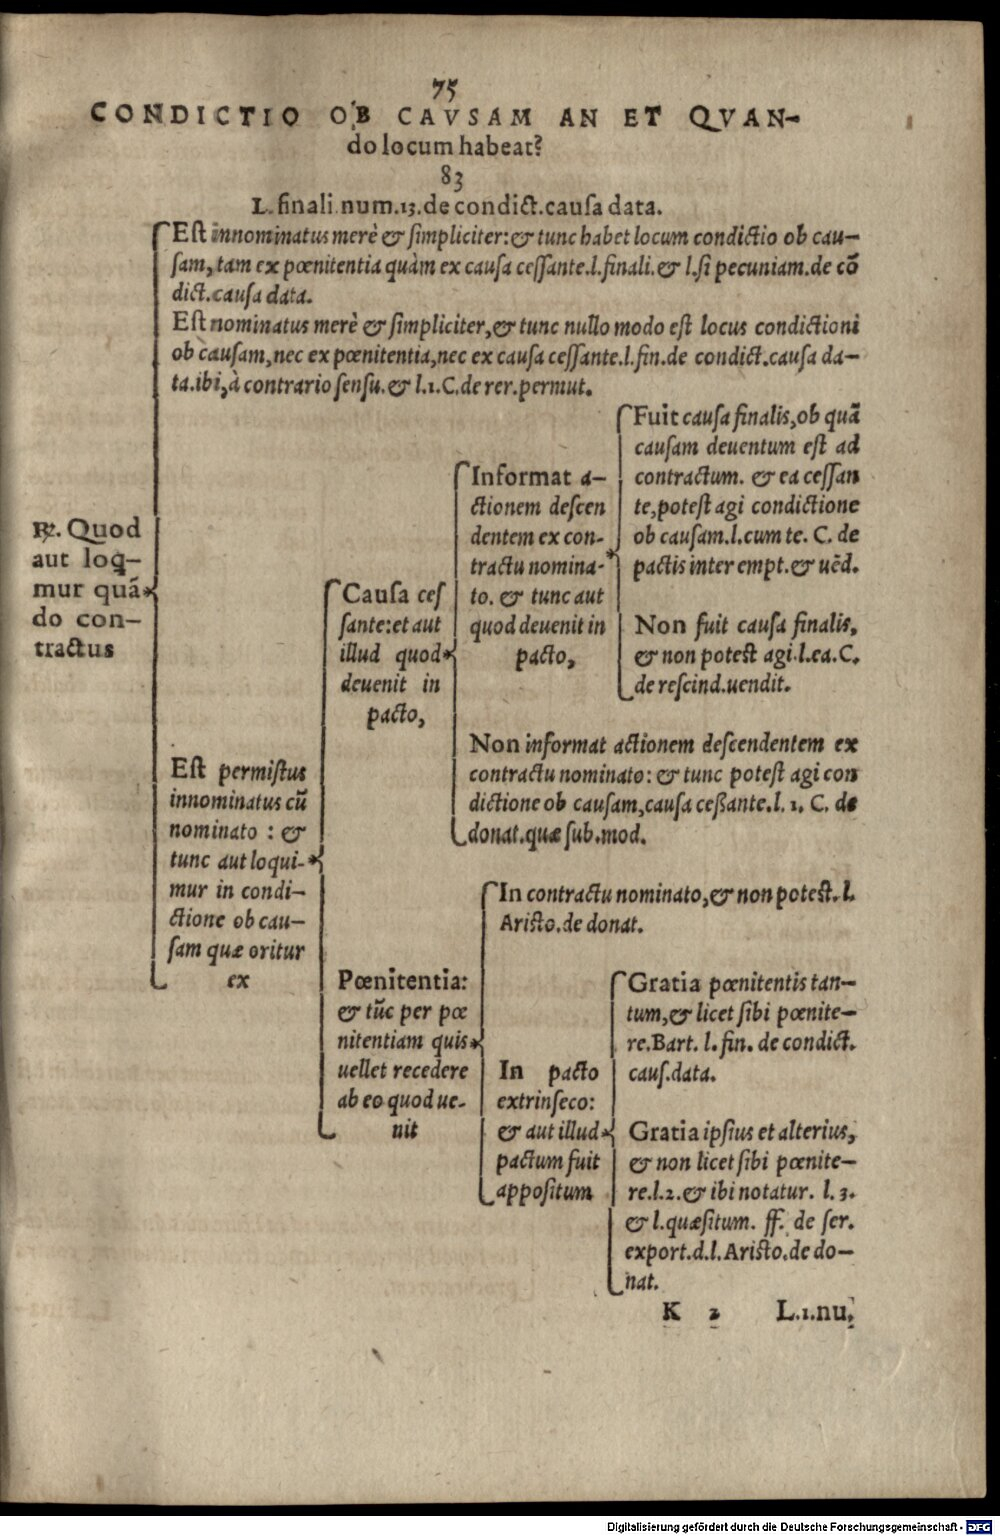 75
CONDICTIO OB CAVSAM AN ET QVAN-
do locum habeat?
83
L. finali num.13. de condict. causa data.
℞. Quod
aut loq̃-
mur quã
do con-
tractus
Est innominatus merè & simpliciter: & tunc habet locum condictio ob cau-
sam, tam ex pœnitentia quàm ex causa cessante. l. finali. & l. si pecuniam. de cõ
dict. causa data.
Est nominatus merè & simpliciter, & tunc nullo modo est locus condictioni
ob causam, nec ex pœnitentia, nec ex causa cessante. l. fin. de condict. causa da-
ta. ibi, à contrario sensu. & l.1. C. de rer. permut.
Est permistus
innominatus cũ
nominato : &
tunc aut loqui-
mur in condi-
ctione ob cau-
sam quæ oritur
ex
Causa ces
sante: et aut
illud quod
deuenit in
pacto,
Informat a-
ctionem descen
dentem ex con-
tractu nomina-
to. & tunc aut
quod deuenit in
pacto,
Fuit causa finalis, ob quã
causam deuentum est ad
contractum. & ea cessan
te, potest agi condictione
ob causam. l. cum te. C. de
pactis inter empt. & uẽd.
Non fuit causa finalis,
& non potest agi. l. ea. C.
de rescind. uendit.
Non informat actionem descendentem ex
contractu nominato: & tunc potest agi con
dictione ob causam, causa ceßante. l. 1. C. de
donat. quæ sub. mod.
Pœnitentia:
& tũc per pœ
nitentiam quis
uellet recedere
ab eo quod ue-
nit
In contractu nominato, & non potest. l.
Aristo. de donat.
In pacto
extrinseco:
& aut illud
pactum fuit
appositum
Gratia pœnitentis tan-
tum, & licet sibi pœnite-
re. Bart. l. fin. de condict.
caus. data.
Gratia ipsius et alterius,
& non licet sibi pœnite-
re. l.2. & ibi notatur. l. 3.
& l. quæsitum. ff. de ser.
export. d. l. Aristo. de do-
nat.
K 2 L.1. nu.
Digitalisierung gefördert durch die Deutsche Forschungsgemeinschaft - DFG